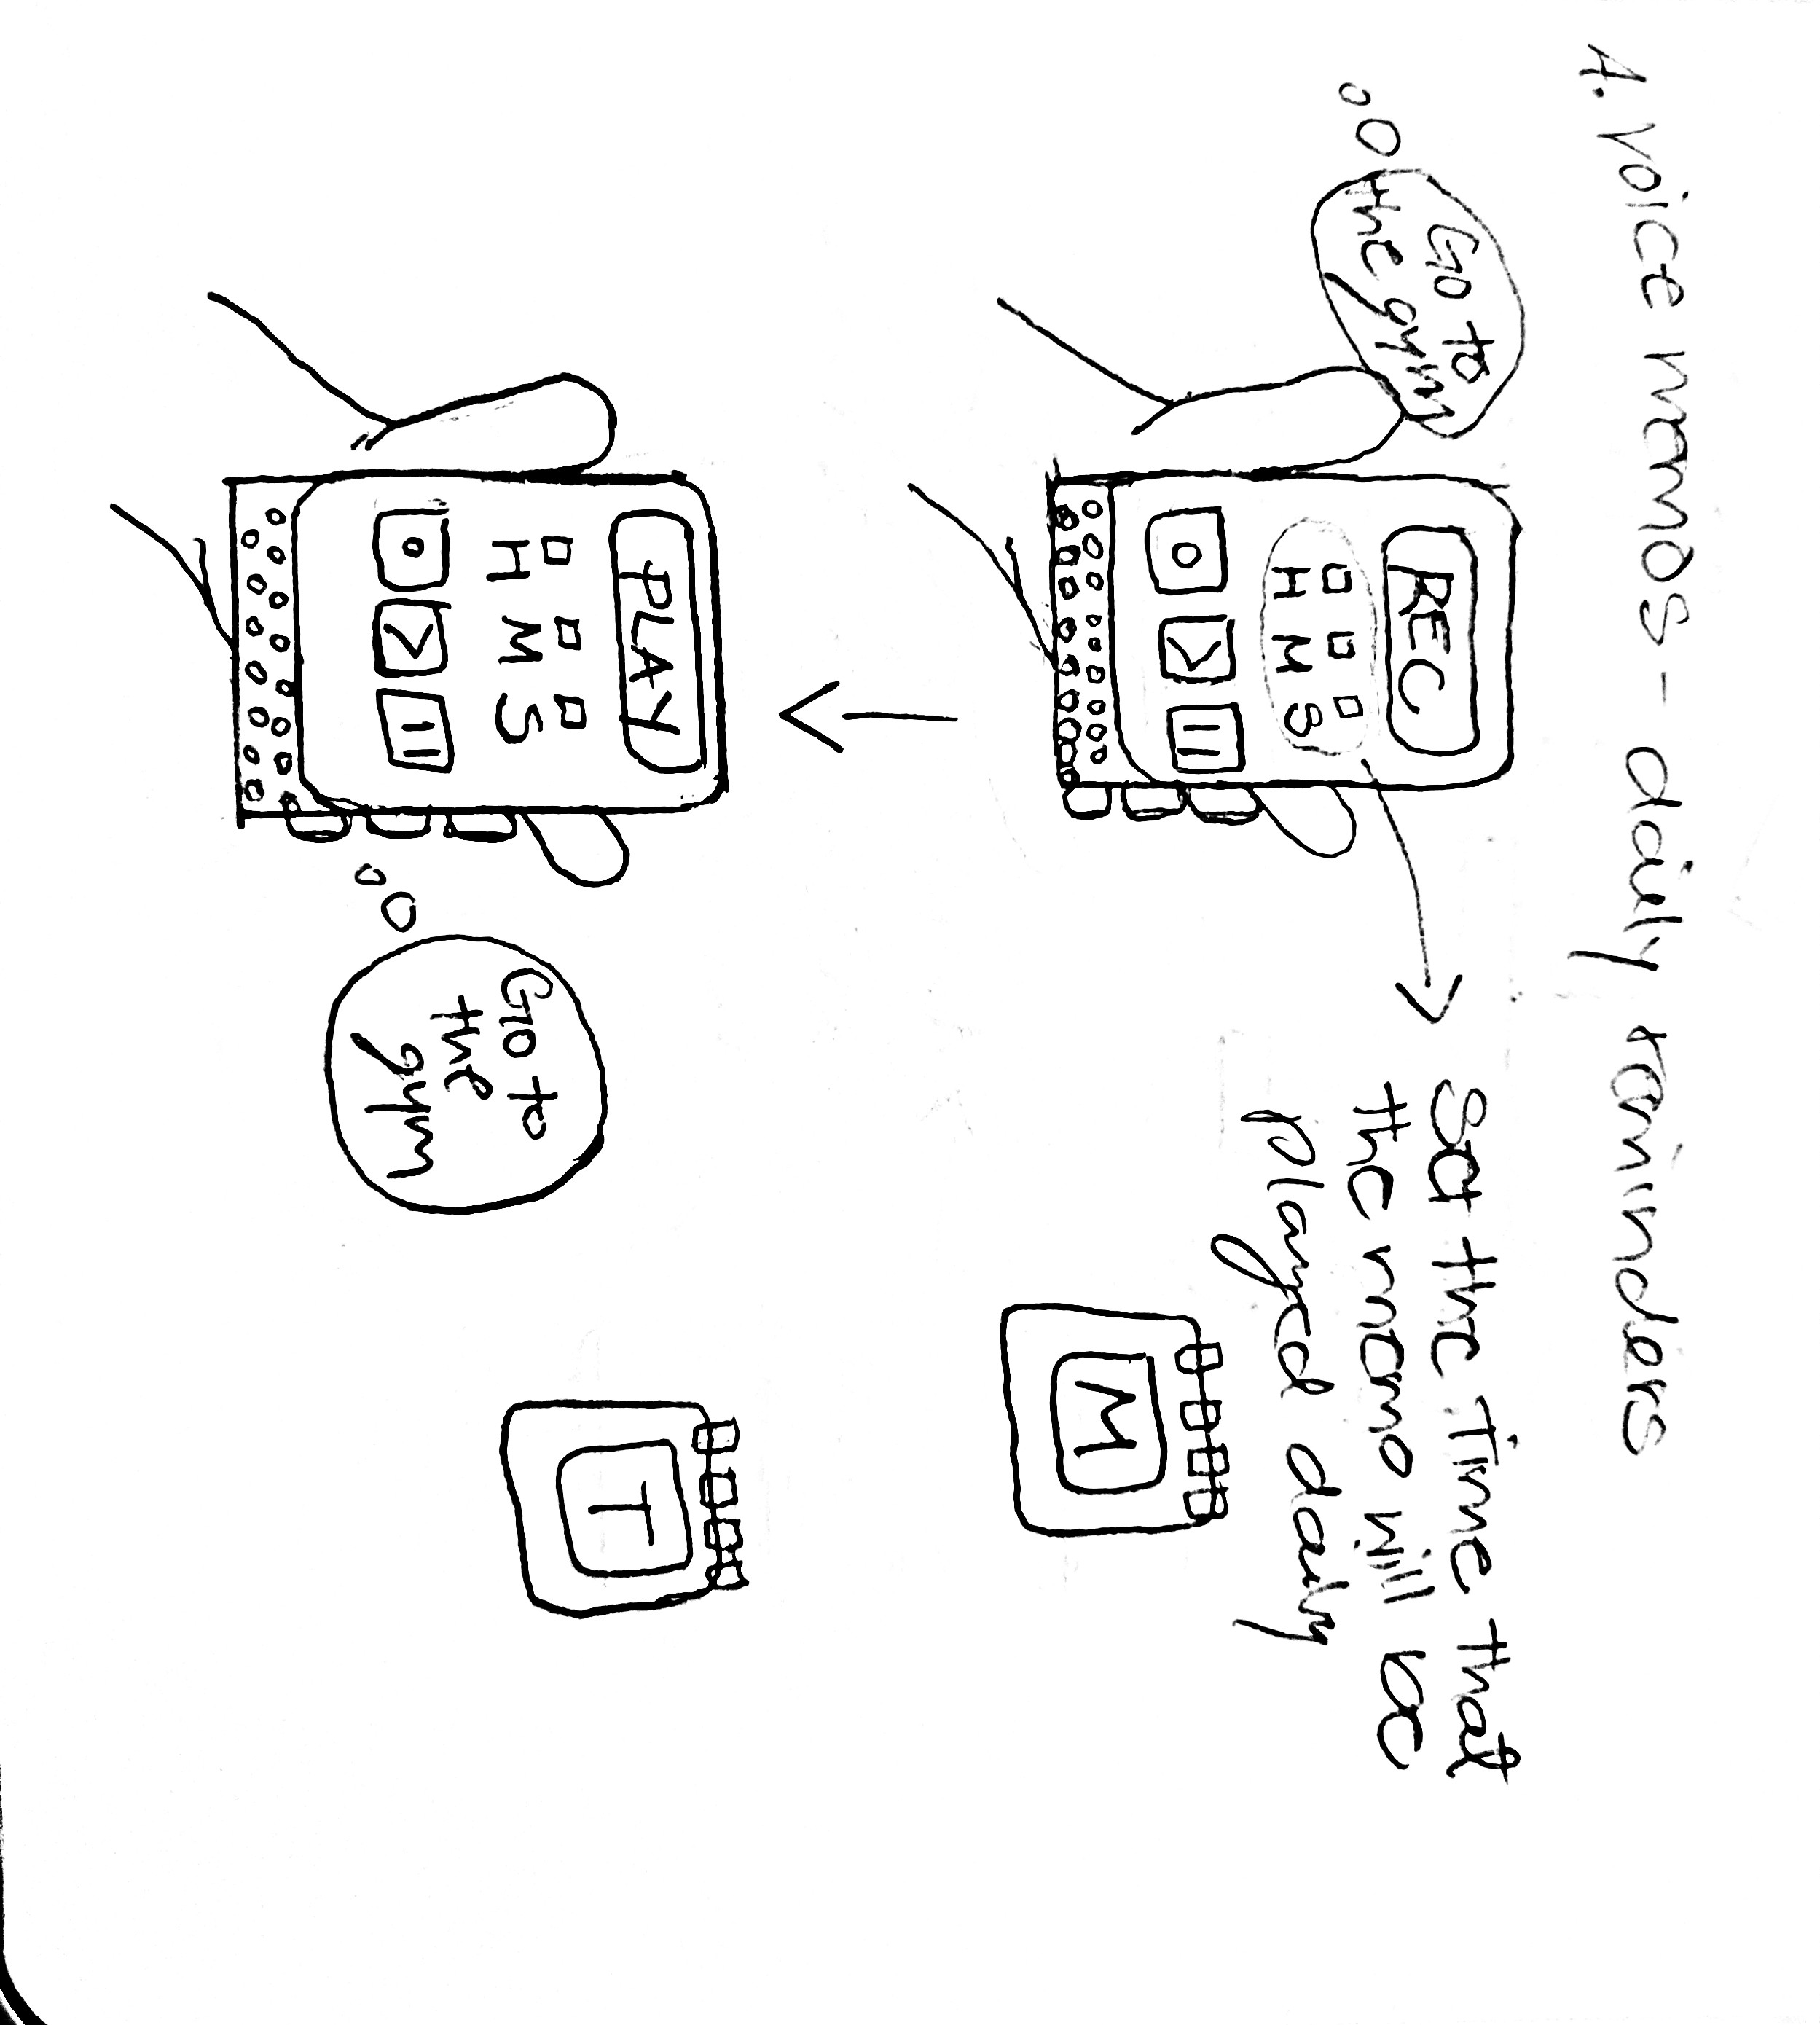 4. Voice memos - daily reminders
Go to
the gym
REC
H M S
Set the time that
the memo will be
played daily
M
PLAY
H M S
Go to
the
gym
T